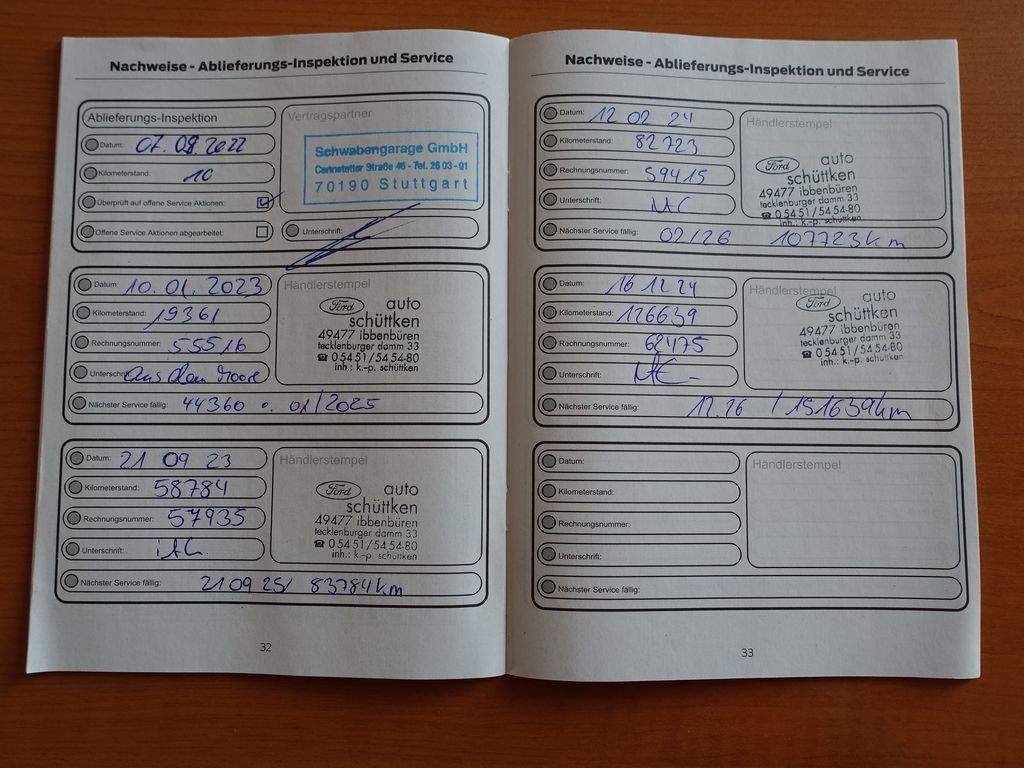 Nachweise - Ablieferungs-Inspektion und Service
Ablieferungs-Inspektion
Datum: 07. 09 2022
Kilometerstand: 10
Überprüft auf offene Service Aktionen:
Offene Service Aktionen abgearbeitet:
Vertragspartner
Schwabengarage GmbH
Cannstatter Straße 46 - Tel. 28 03 - 01
70190 Stuttgart
Unterschrift:
Datum: 10. 01. 2023
Kilometerstand: 19361
Rechnungsnummer: 55516
Unterschrift:
Händlerstempel
Ford auto
schüttken
49477 ibbenbüren
tecklenburger damm 33
☎ 05451/5454-80
inh.: k.-p. schüttken
Nächster Service fällig: 44360 o. 01/2025
Datum: 21 09 23
Kilometerstand: 58784
Rechnungsnummer: 57935
Unterschrift:
Händlerstempel
Ford auto
schüttken
49477 ibbenbüren
tecklenburger damm 33
☎ 05451/5454-80
inh.: k.-p. schüttken
Nächster Service fällig: 21 09 25/ 83784km
32
Nachweise - Ablieferungs-Inspektion und Service
Datum: 12 02 24
Kilometerstand: 82723
Rechnungsnummer: 59415
Unterschrift:
Händlerstempel
Ford auto
schüttken
49477 ibbenbüren
tecklenburger damm 33
☎ 05451/5454-80
inh.: k.-p. schüttken
Nächster Service fällig: 02/26 107723km
Datum: 16 12 24
Kilometerstand: 126639
Rechnungsnummer: 62475
Unterschrift:
Händlerstempel
Ford auto
schüttken
49477 ibbenbüren
tecklenburger damm 33
☎ 05451/5454-80
inh.: k.-p. schüttken
Nächster Service fällig: 12.26 / 151639km
Datum:
Kilometerstand:
Rechnungsnummer:
Unterschrift:
Händlerstempel
Nächster Service fällig:
33